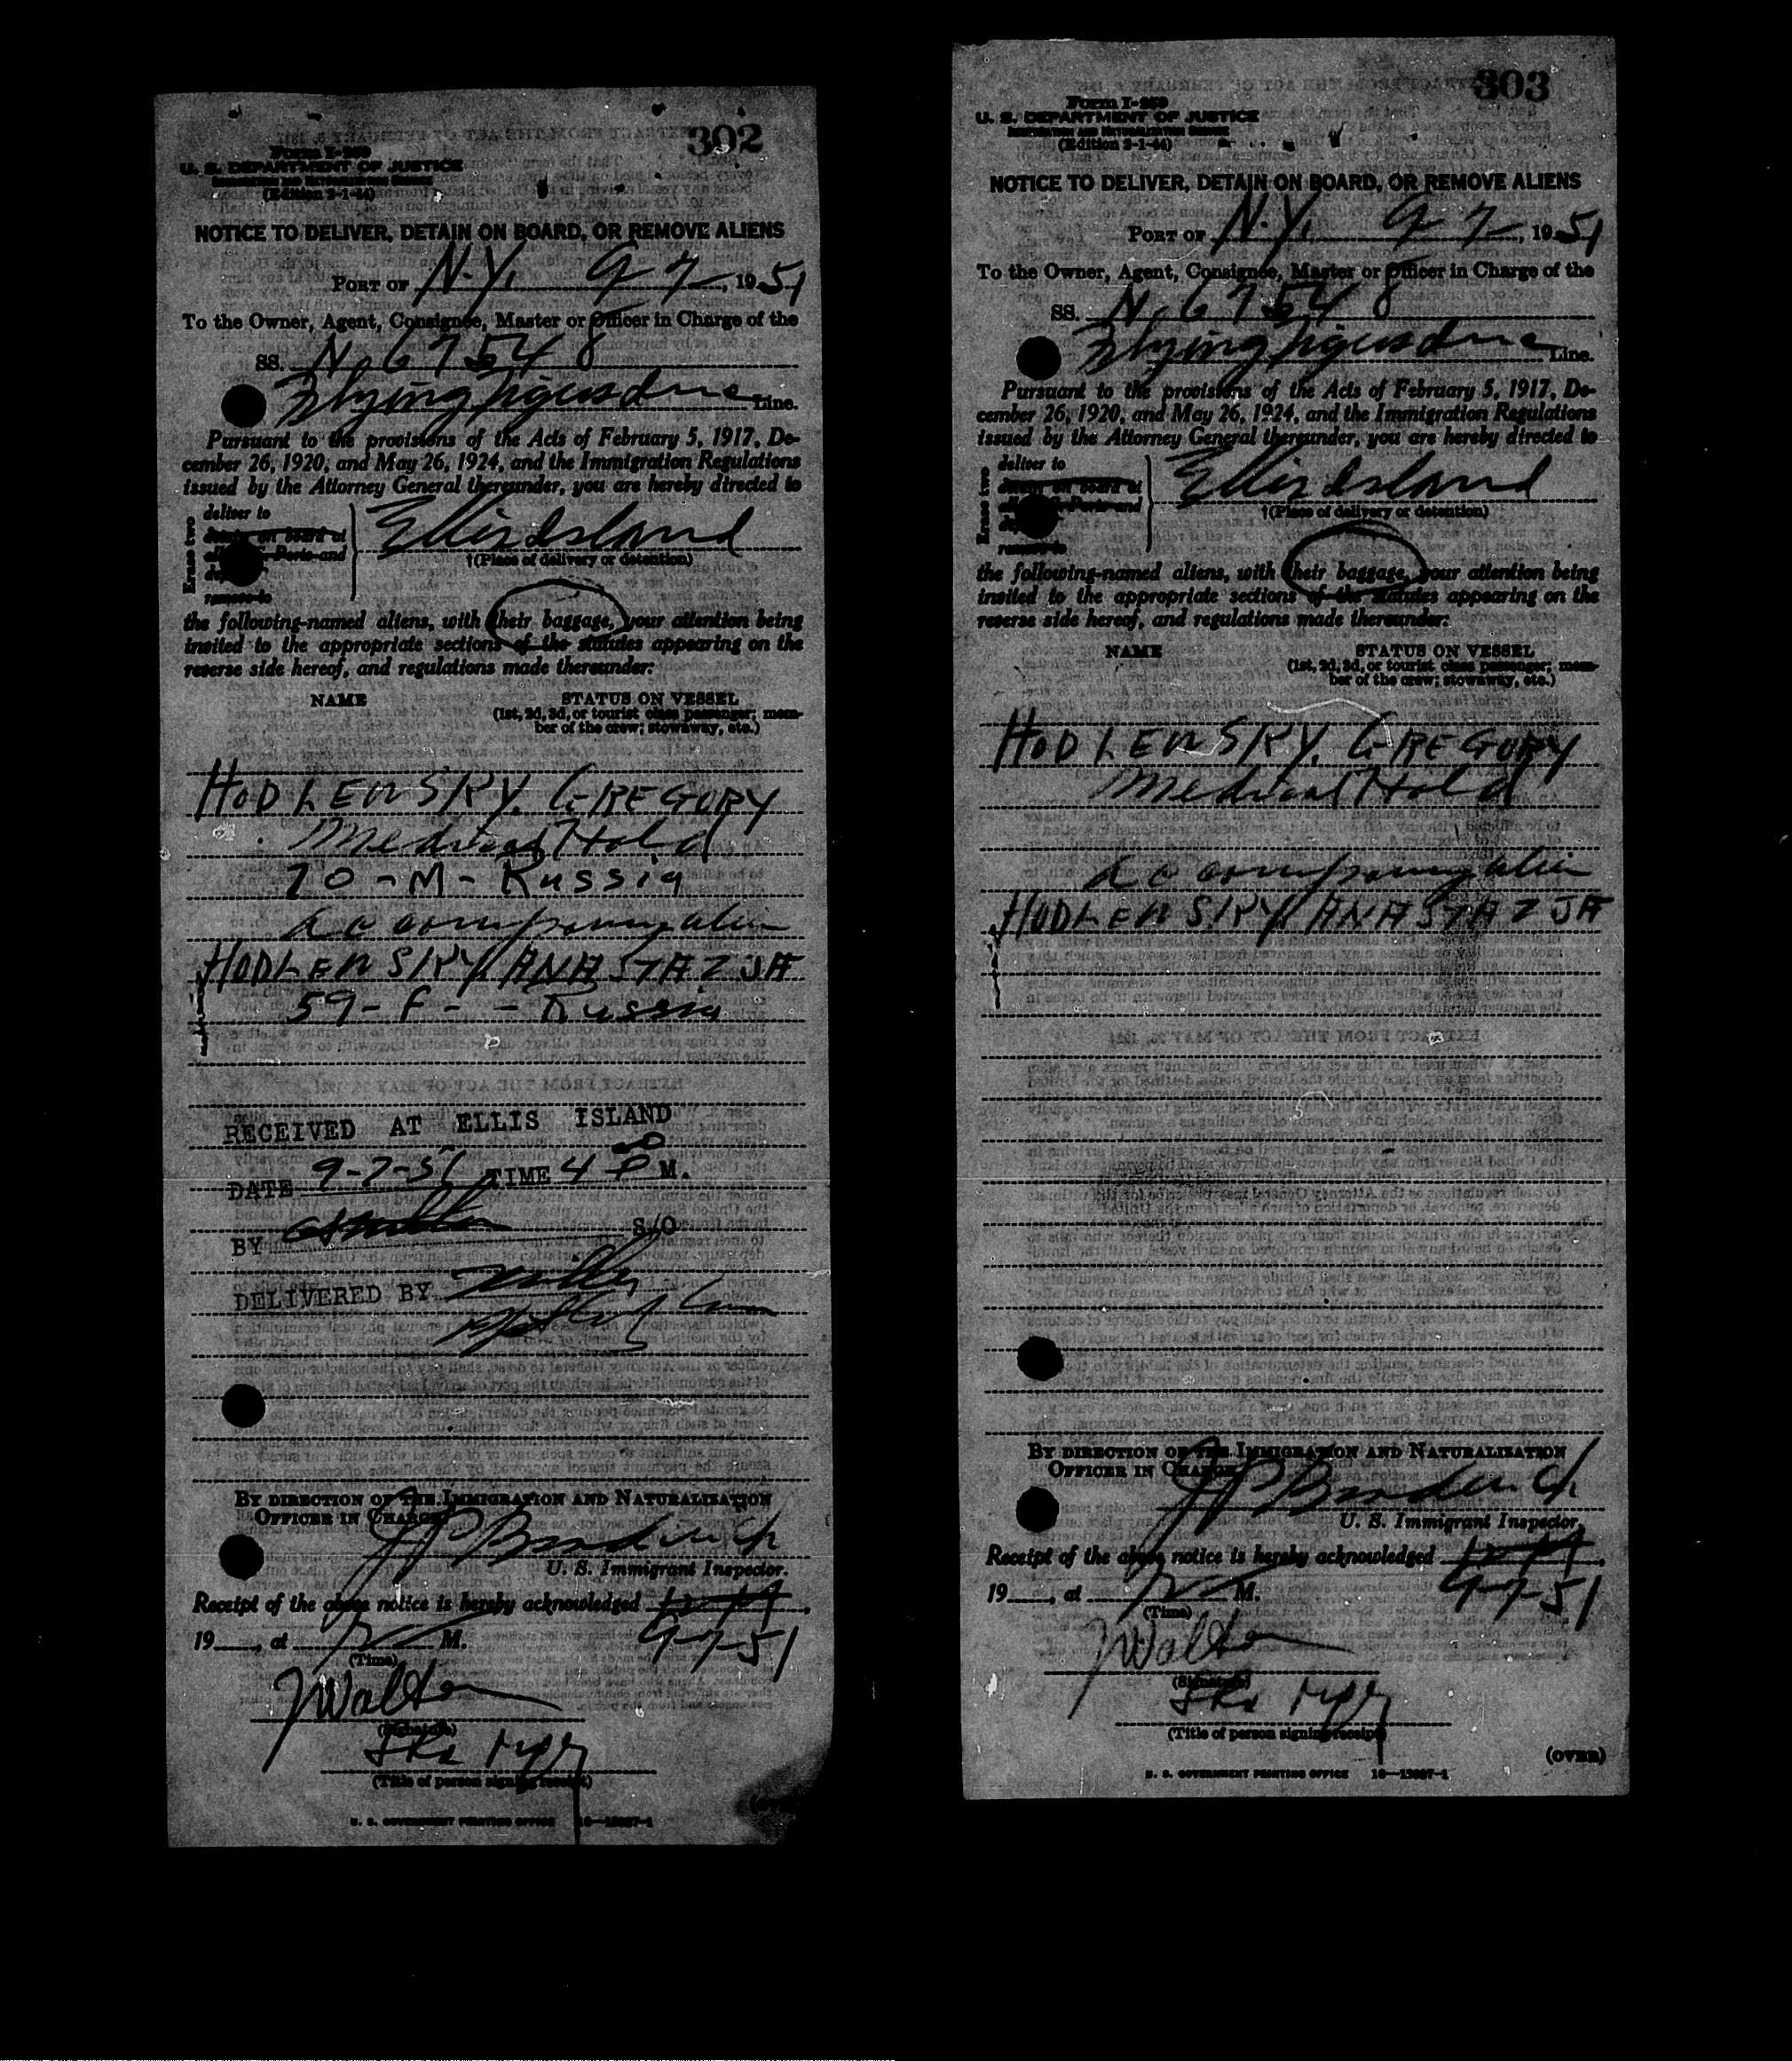 302
Form I-259
U. S. DEPARTMENT OF JUSTICE
IMMIGRATION AND NATURALIZATION SERVICE
(Edition 2-1-44)
NOTICE TO DELIVER, DETAIN ON BOARD, OR REMOVE ALIENS
PORT OF N.Y. 9 7, 1951
To the Owner, Agent, Consignee, Master or Officer in Charge of the
SS. N. 67548
Flying Tiger Line Line.
Pursuant to the provisions of the Acts of February 5, 1917, De-
cember 26, 1920, and May 26, 1924, and the Immigration Regulations
issued by the Attorney General thereunder, you are hereby directed to
Erase two
deliver to
detain on board at
Ports and
remove to
Ellis Island
†(Place of delivery or detention)
the following-named aliens, with their baggage, your attention being
invited to the appropriate sections of the statutes appearing on the
reverse side hereof, and regulations made thereunder:
NAME STATUS ON VESSEL
(1st, 2d, 3d, or tourist class passenger; mem-
ber of the crew; stowaway, etc.)
HODLEWSKY, GREGORY
Medical Hold
70 - M - Russia
Accompanying alien
HODLEWSKY, ANASTAZJA
59 - F - - Russia
RECEIVED AT ELLIS ISLAND
DATE 9-7-51 TIME 4 00 P M.
BY S/O
DELIVERED BY
BY DIRECTION OF THE IMMIGRATION AND NATURALIZATION
OFFICER IN CHARGE
U. S. Immigrant Inspector.
Receipt of the above notice is hereby acknowledged
19 , at 12 M. 9-7-51
(Time)
J Walton
(Signature)
(Title of person signing receipt)
U. S. GOVERNMENT PRINTING OFFICE 16—13987-1
303
Form I-259
U. S. DEPARTMENT OF JUSTICE
IMMIGRATION AND NATURALIZATION SERVICE
(Edition 2-1-44)
NOTICE TO DELIVER, DETAIN ON BOARD, OR REMOVE ALIENS
PORT OF N.Y. 9 7, 1951
To the Owner, Agent, Consignee, Master or Officer in Charge of the
SS. N. 67548
Flying Tiger Line Line.
Pursuant to the provisions of the Acts of February 5, 1917, De-
cember 26, 1920, and May 26, 1924, and the Immigration Regulations
issued by the Attorney General thereunder, you are hereby directed to
Erase two
deliver to
detain on board at
Ports and
remove to
Ellis Island
†(Place of delivery or detention)
the following-named aliens, with their baggage, your attention being
invited to the appropriate sections of the statutes appearing on the
reverse side hereof, and regulations made thereunder:
NAME STATUS ON VESSEL
(1st, 2d, 3d, or tourist class passenger; mem-
ber of the crew; stowaway, etc.)
HODLEWSKY, GREGORY
Medical Hold
Accompanying alien
HODLEWSKY, ANASTAZJA
BY DIRECTION OF THE IMMIGRATION AND NATURALIZATION
OFFICER IN CHARGE
U. S. Immigrant Inspector.
Receipt of the above notice is hereby acknowledged
19 , at 12 M. 9-7-51
(Time)
J Walton
(Signature)
(Title of person signing receipt)
(OVER)
U. S. GOVERNMENT PRINTING OFFICE 16—13987-1